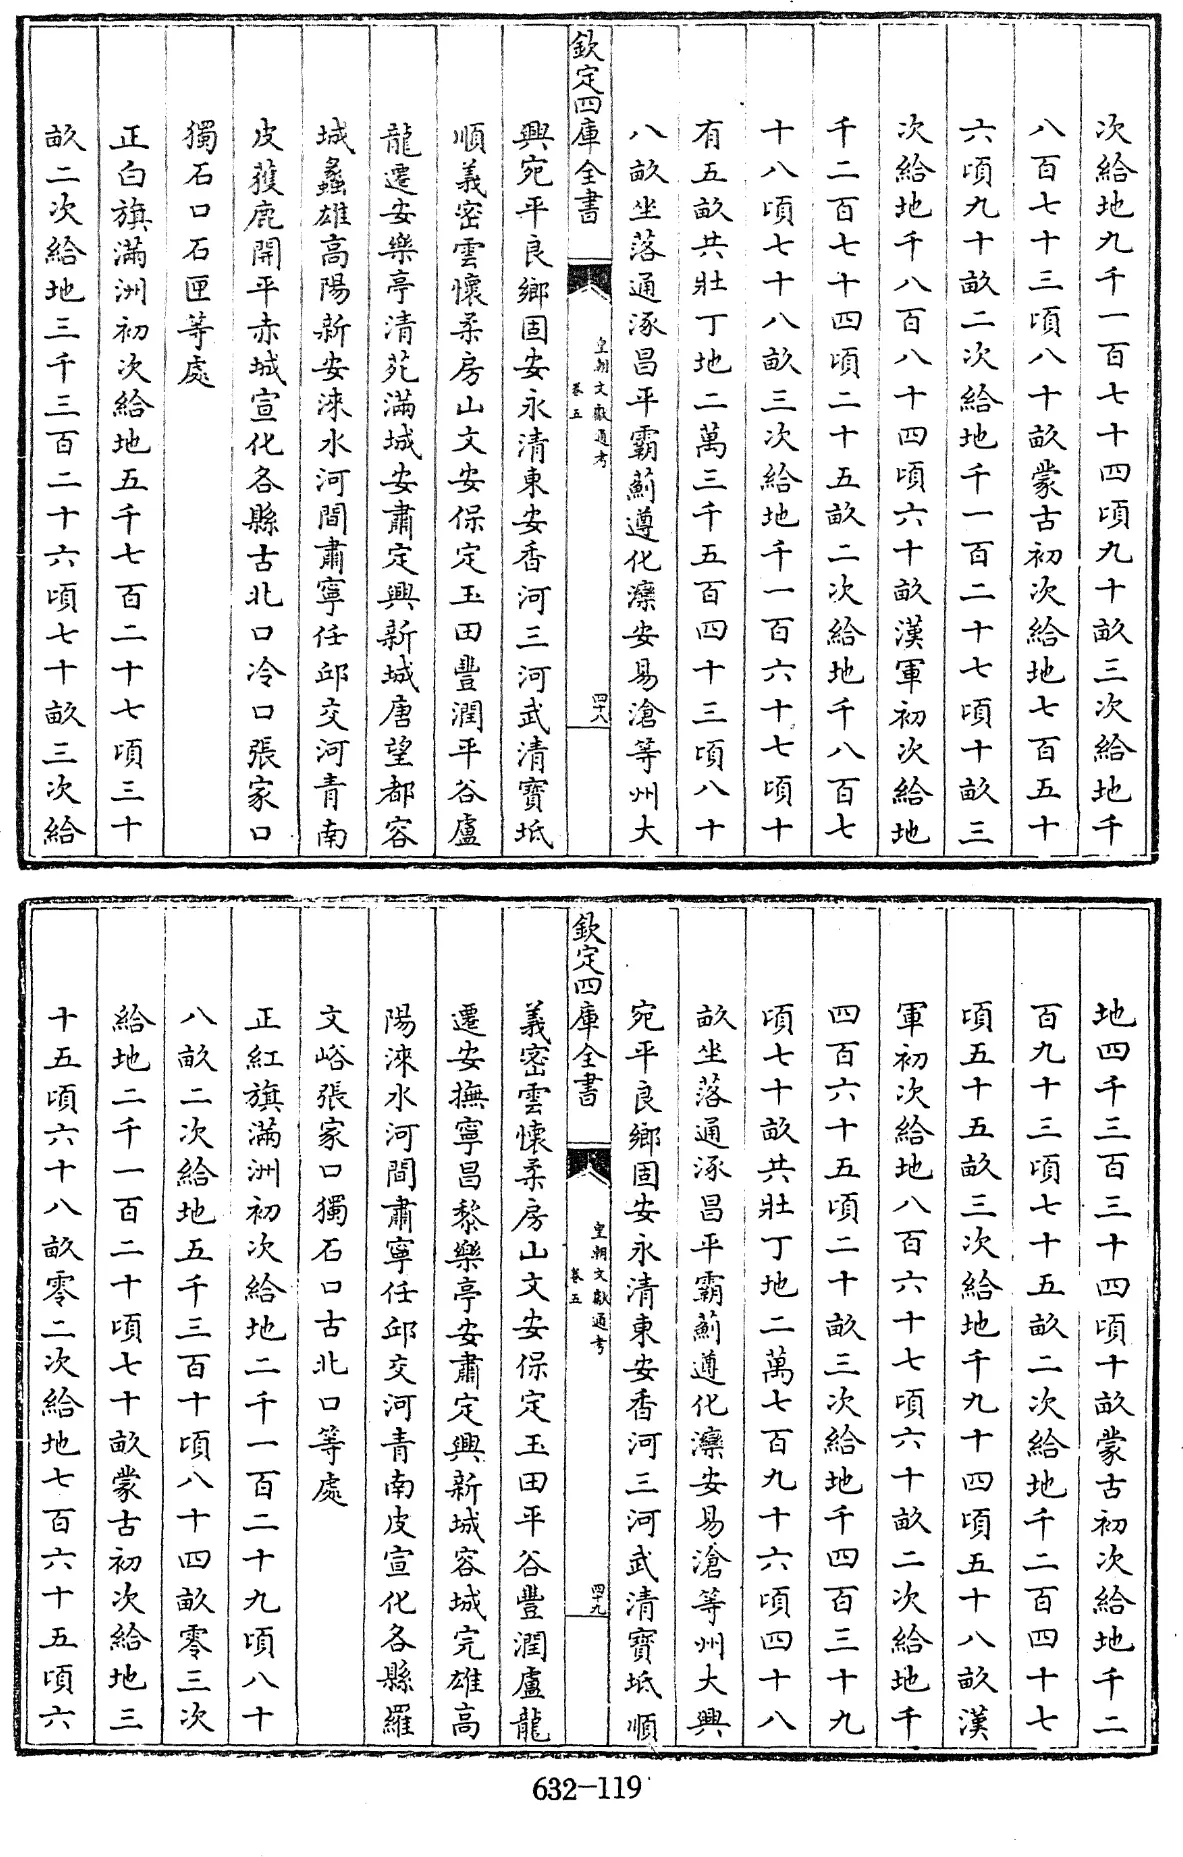 次給地九千一百七十四頃九十畝三次給地千
八百七十三頃八十畝蒙古初次給地七百五十
六頃九十畝二次給地千一百二十七頃十畝三
次給地千八百八十四頃六十畝漢軍初次給地
千二百七十四頃二十五畝二次給地千八百七
十八頃七十八畝三次給地千一百六十七頃十
有五畝共壯丁地二萬三千五百四十三頃八十
八畝坐落通涿昌平霸薊遵化灤安易滄等州大
欽定四庫全書
皇朝文獻通考
卷五
四十八
興宛平良鄉固安永清東安香河三河武清寶坻
順義密雲懷柔房山文安保定玉田豐潤平谷盧
龍遷安樂亭清苑滿城安肅定興新城唐望都容
城蠡雄高陽新安淶水河間肅寧任邱交河青南
皮獲鹿開平赤城宣化各縣古北口冷口張家口
獨石口石匣等處
正白旗滿洲初次給地五千七百二十七頃三十
畝二次給地三千三百二十六頃七十畝三次給
地四千三百三十四頃十畝蒙古初次給地千二
百九十三頃七十五畝二次給地千二百四十七
頃五十五畝三次給地千九十四頃五十八畝漢
軍初次給地八百六十七頃六十畝二次給地千
四百六十五頃二十畝三次給地千四百三十九
頃七十畝共壯丁地二萬七百九十六頃四十八
畝坐落通涿昌平霸薊遵化灤安易滄等州大興
宛平良鄉固安永清東安香河三河武清寶坻順
欽定四庫全書
皇朝文獻通考
卷五
四十九
義密雲懷柔房山文安保定玉田平谷豐潤盧龍
遷安撫寧昌黎樂亭安肅定興新城容城完雄高
陽淶水河間肅寧任邱交河青南皮宣化各縣羅
文峪張家口獨石口古北口等處
正紅旗滿洲初次給地二千一百二十九頃八十
八畝二次給地五千三百十頃八十四畝零三次
給地二千一百二十頃七十畝蒙古初次給地三
十五頃六十八畝零二次給地七百六十五頃六
632-119